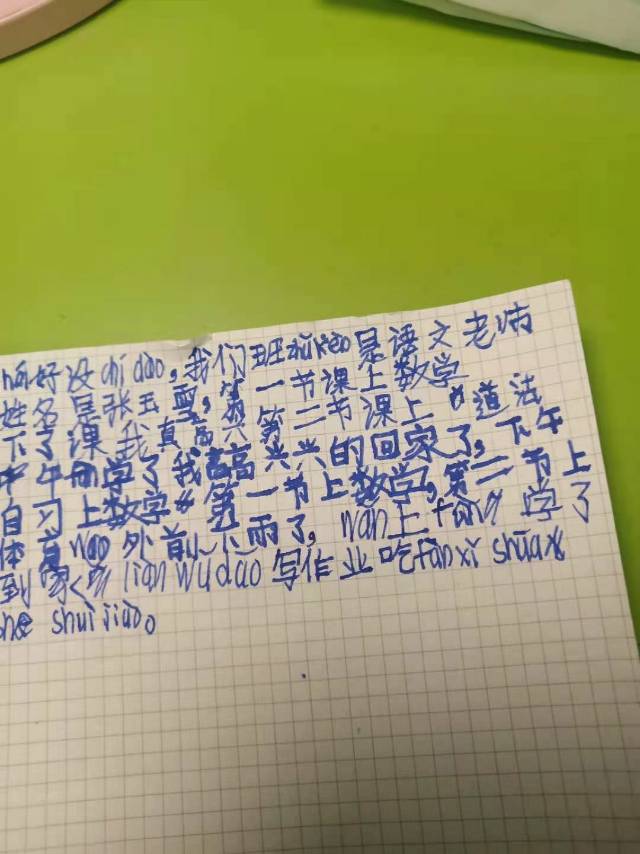 好没chí dào,我们班zhǔrèn是语文老师
姓名是张玉雪,第一节课上数学
下了课我真高兴第二节课上道法
中午fàng学了我高高兴兴的回家了,下午
自习上数学第一节上数学,第二节上
体育 外前下雨了, wǎn上fàng学了
到家 liàn wǔ dǎo 写作业吃fàn xǐ shuā
shuì jiào。